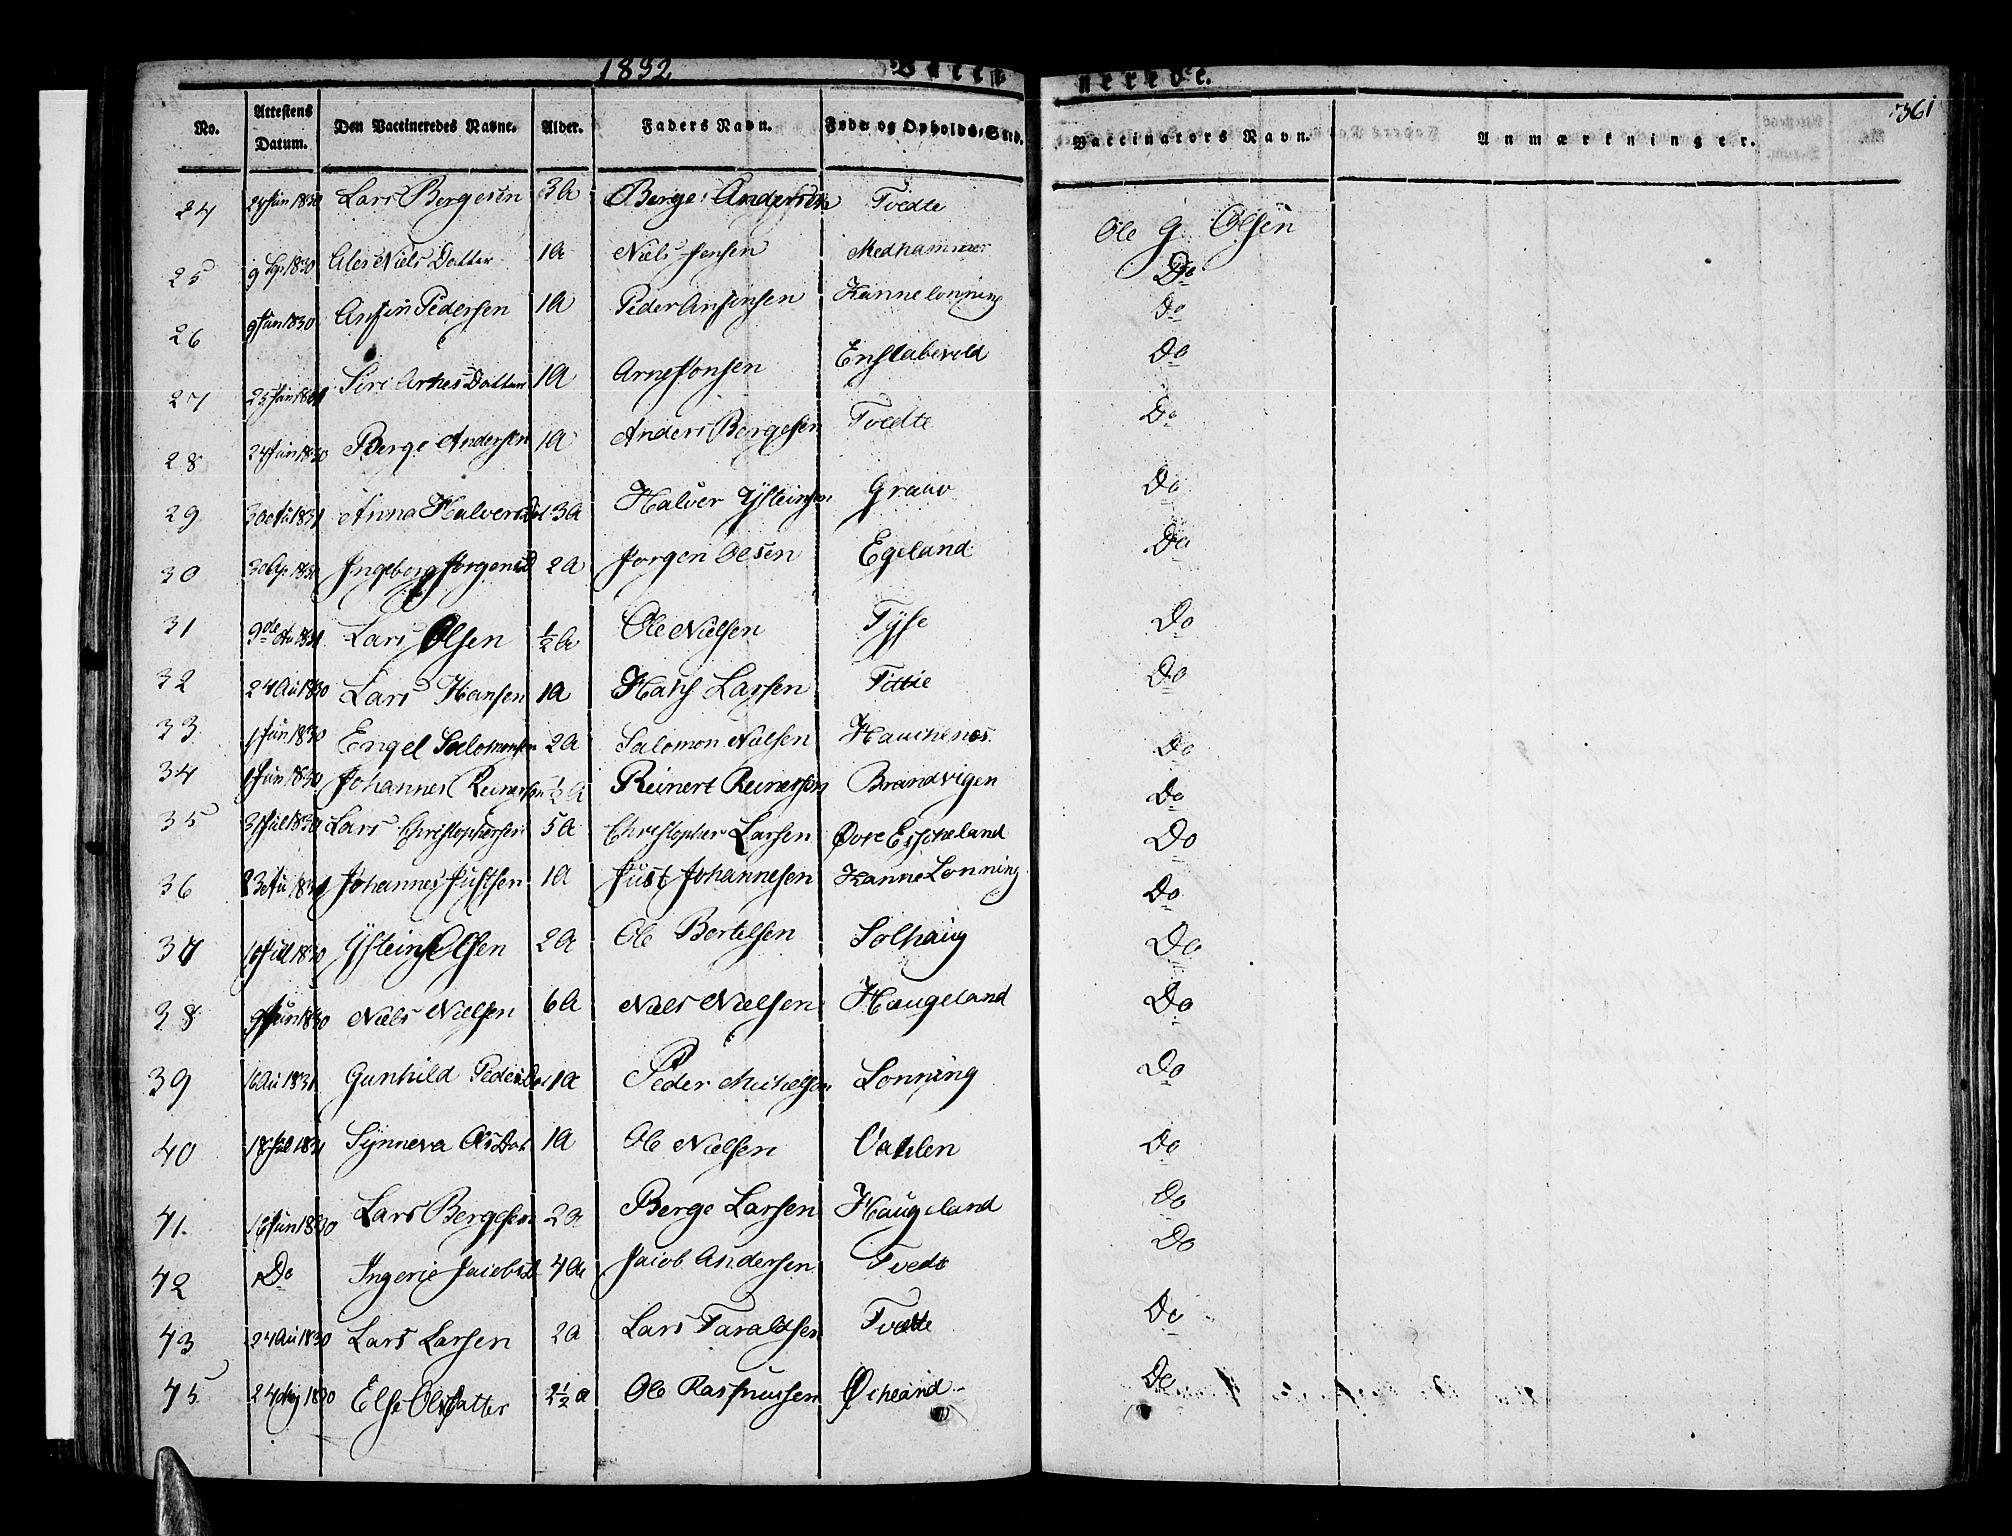 1832 Vaccinerede. 361
No. Attestens Datum. Den Vaccineredes Navne. Alder. Faders Navn. Føde og Opholds-Sted. Vaccinators Navn. Anmærkninger.
24 24 Jun 1830 Lars Bergesen 3 A Berge Andersen Tvedte Ole G Olsen
25 9 Sep 1830 Ales Niels Datter 1 A Niels Jensen Medhammer Do
26 9 Jun 1830 Ansjin Pedersen 1 A Peder Ansjonsen Kannelønning Do
27 25 Jun Siri Arnes Datter 1 A Arne Jonsen Enstabevold Do
28 24 Jun 1830 Berge Andersen 1 A Anders Bergesen Tvedte Do
29 30 Au 1831 Anna Halvers Dat 3 A Halver Ysteinsen Graue Do
30 30 Sep. 1831 Ingeborg Jørgens D 2 A Jorgen Olsen Egeland Do
31 9de Au 1831 Lars Olsen ½ A Ole Nielsen Tyse Do
32 24 Au 1830 Lars Hansen 1 A Hans Larsen Tittie Do
33 1 Jun 1830 Engel Salomonsen 2 A Salomon Nielsen Hauchenes Do
34 Jun 1830 Johannes Reinertsen ½ A Reinert Reinertsen Brandvigen Do
35 31 Jul 1830 Lars Christophersen 5 A Christopher Larsen Øvre Escheland Do
36 23 Au 1831 Johannes Justsen 1 A Just Johannesen Kannelønning Do
37 10 Jul 1830 Ystein Olsen 2 A Ole Bertelsen Solhaug Do
38 9 Jun 1830 Niels Nielsen 6 A Niels Nielsen Haugeland Do
39 16 Au 1831 Gunhild Peders Dat 1 A Peder Michelsen Lonning Do
40 18 Jul 1831 Synneva Ols Dat 1 A Ole Nielsen Vahlen Do
41. 16 Jun 1830 Lars Bergesen 2 A Berge Larsen Haugeland Do
42 Do Ingerie Jacobs D 4 A Jacob Andersen Tvedt Do
43 24 Au 1830 Lars Larsen 2 A Lars Taraldsen Tvedte Do
45 24 Aug 1830 Else Ols Datter 2½ A Ole Rasmussen Øcheland Do